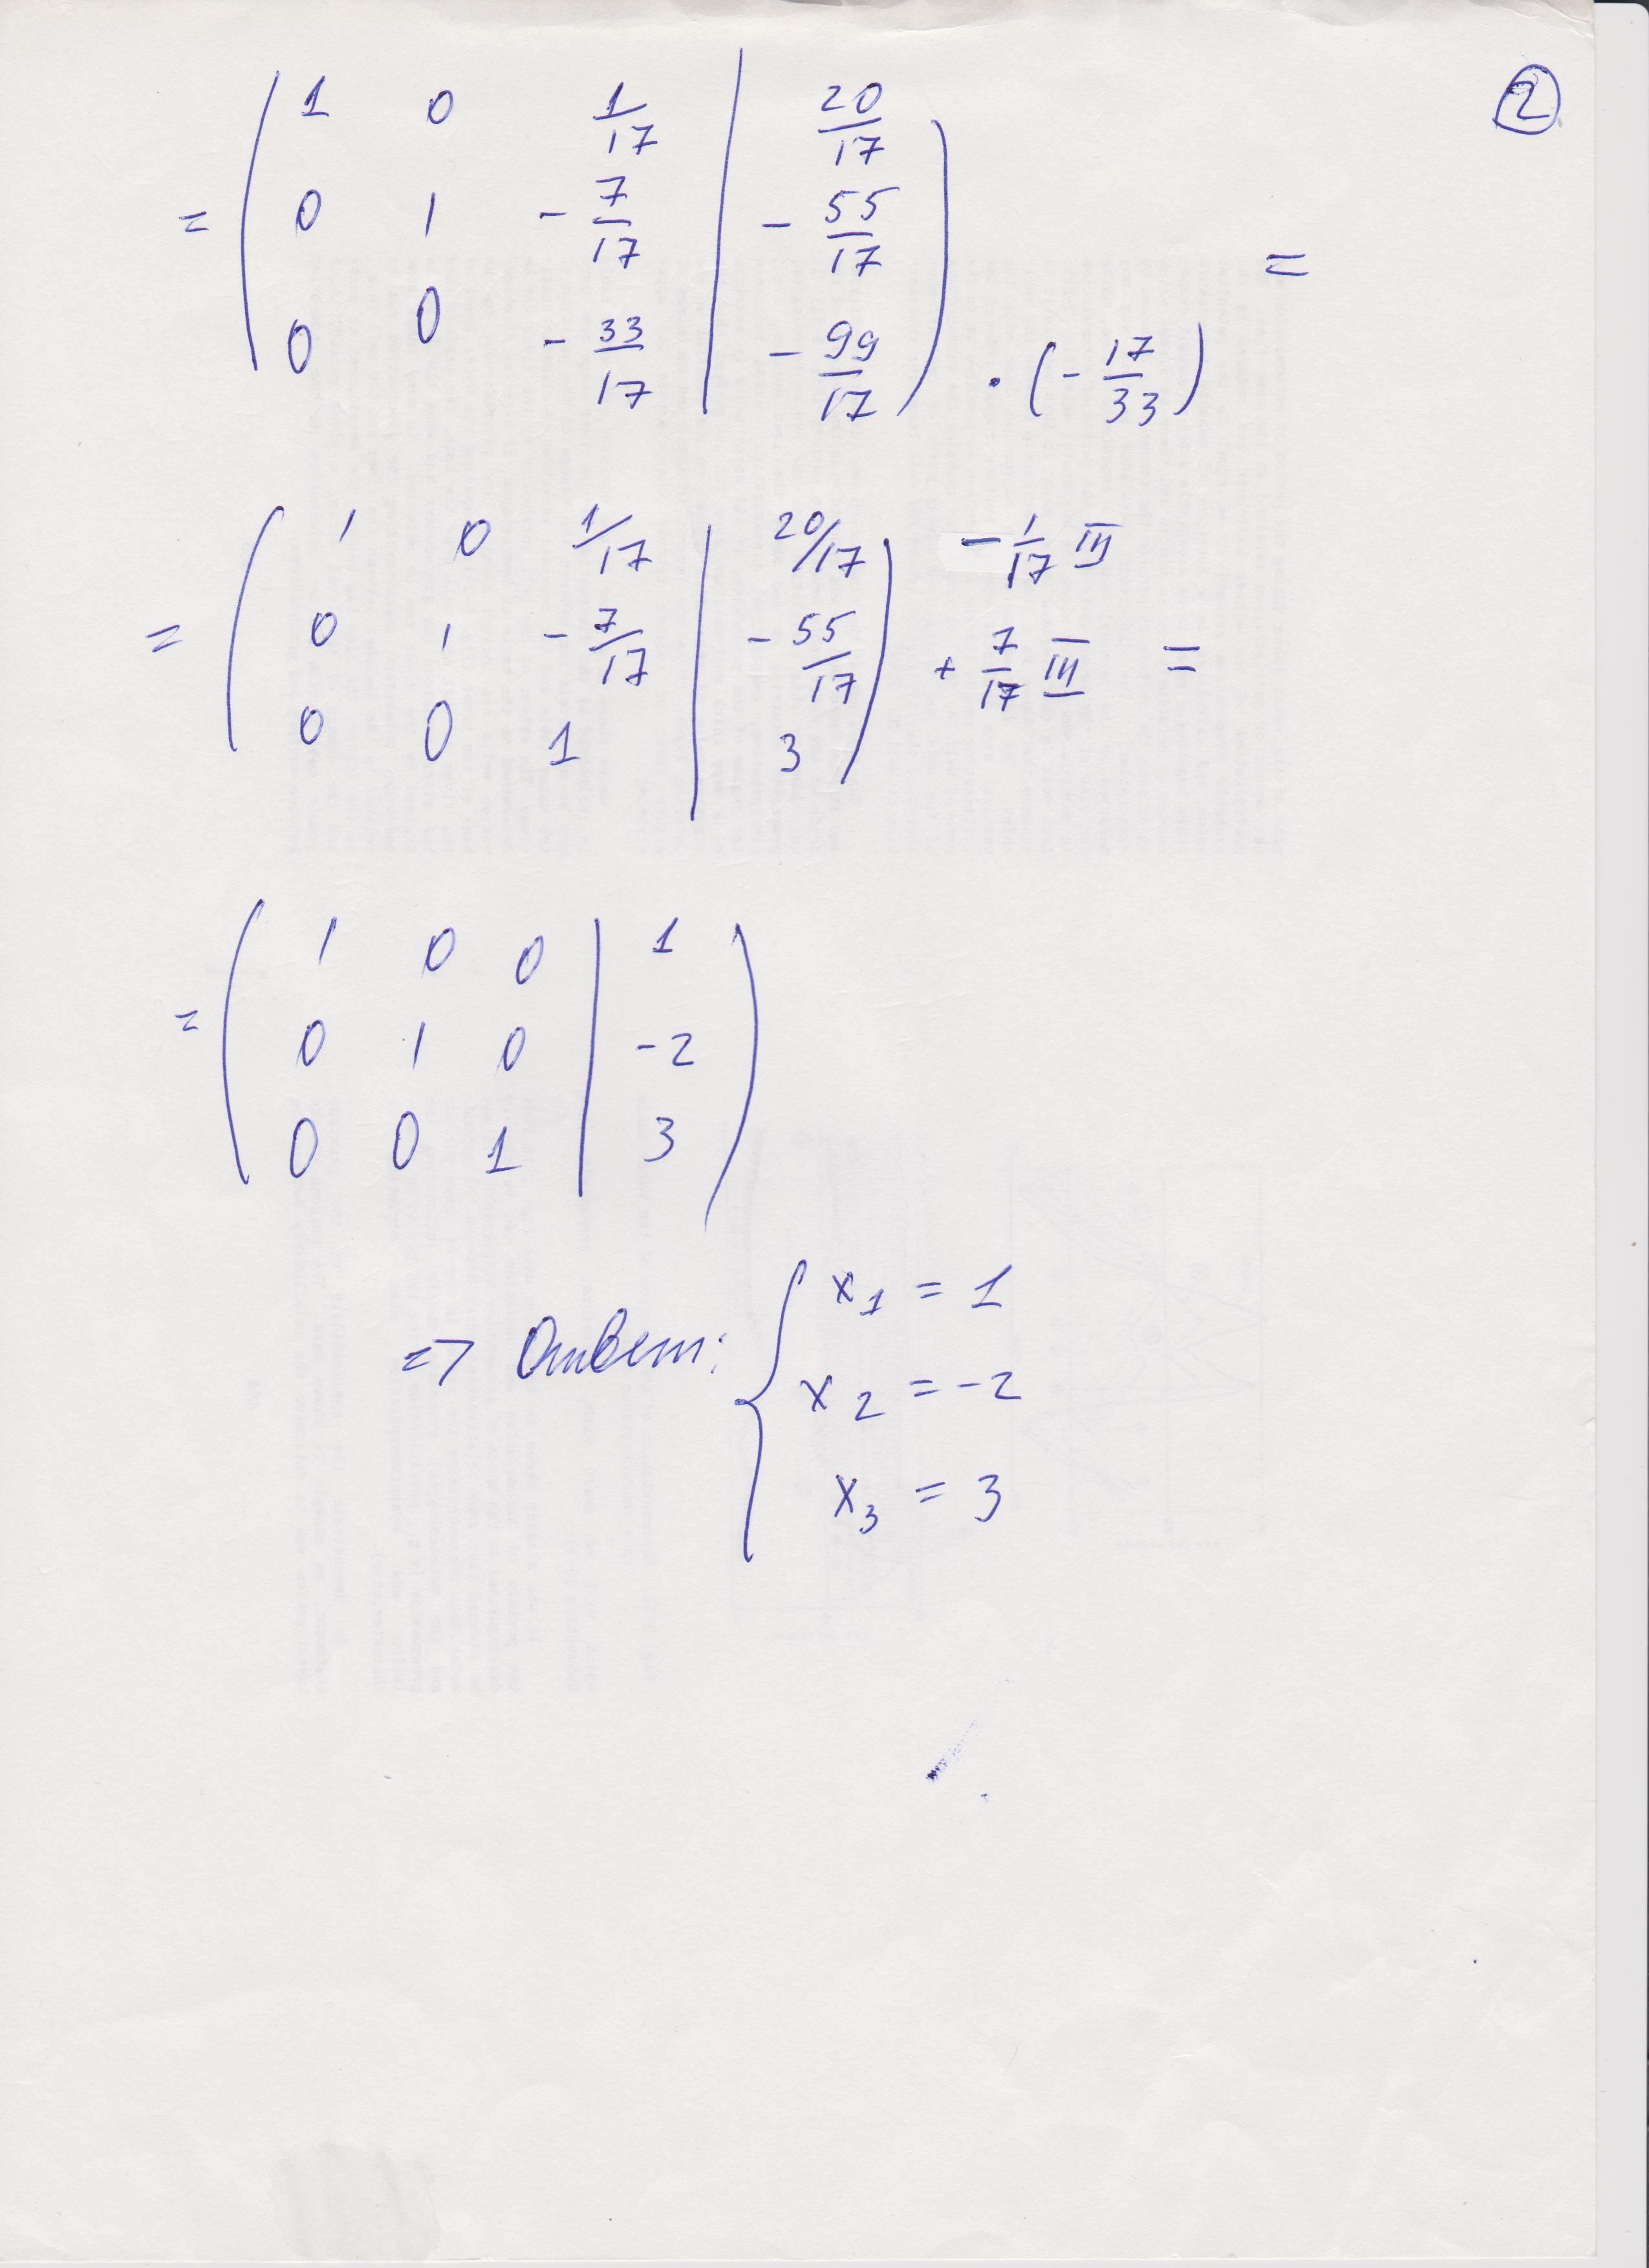 ②
1 0 1/17 | 20/17
= ( 0 1 - 7/17 | - 55/17 ) =
0 0 - 33/17 | - 99/17 · (- 17/33)
1 0 1/17 | 20/17 - 1/17 III
= ( 0 1 - 7/17 | - 55/17 ) + 7/17 III =
0 0 1 | 3
1 0 0 | 1
= ( 0 1 0 | -2 )
0 0 1 | 3
=> Ответ: { x1 = 1
x2 = -2
x3 = 3